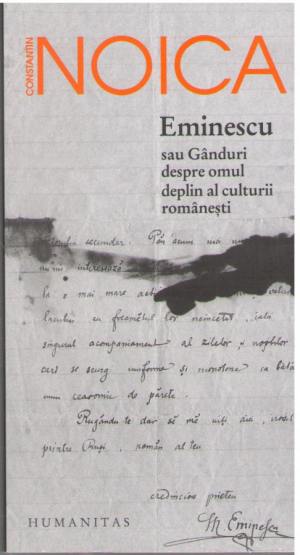 CONSTANTIN
NOICA
Eminescu
sau Gânduri
despre omul
deplin al culturii
românești
secunder. Pân acum
interesează
la o mai mare
lacului cu freamătul lor neîncetat, iată
singurul acompaniament al zilelor și nopților
cari se scurg uniforme și monotone ca bătăi
unui ceasornic de părete.
Rugându-te dar să mă uiți
printre Ruși, român al teu
credincios prieten
M. Eminescu
HUMANITAS